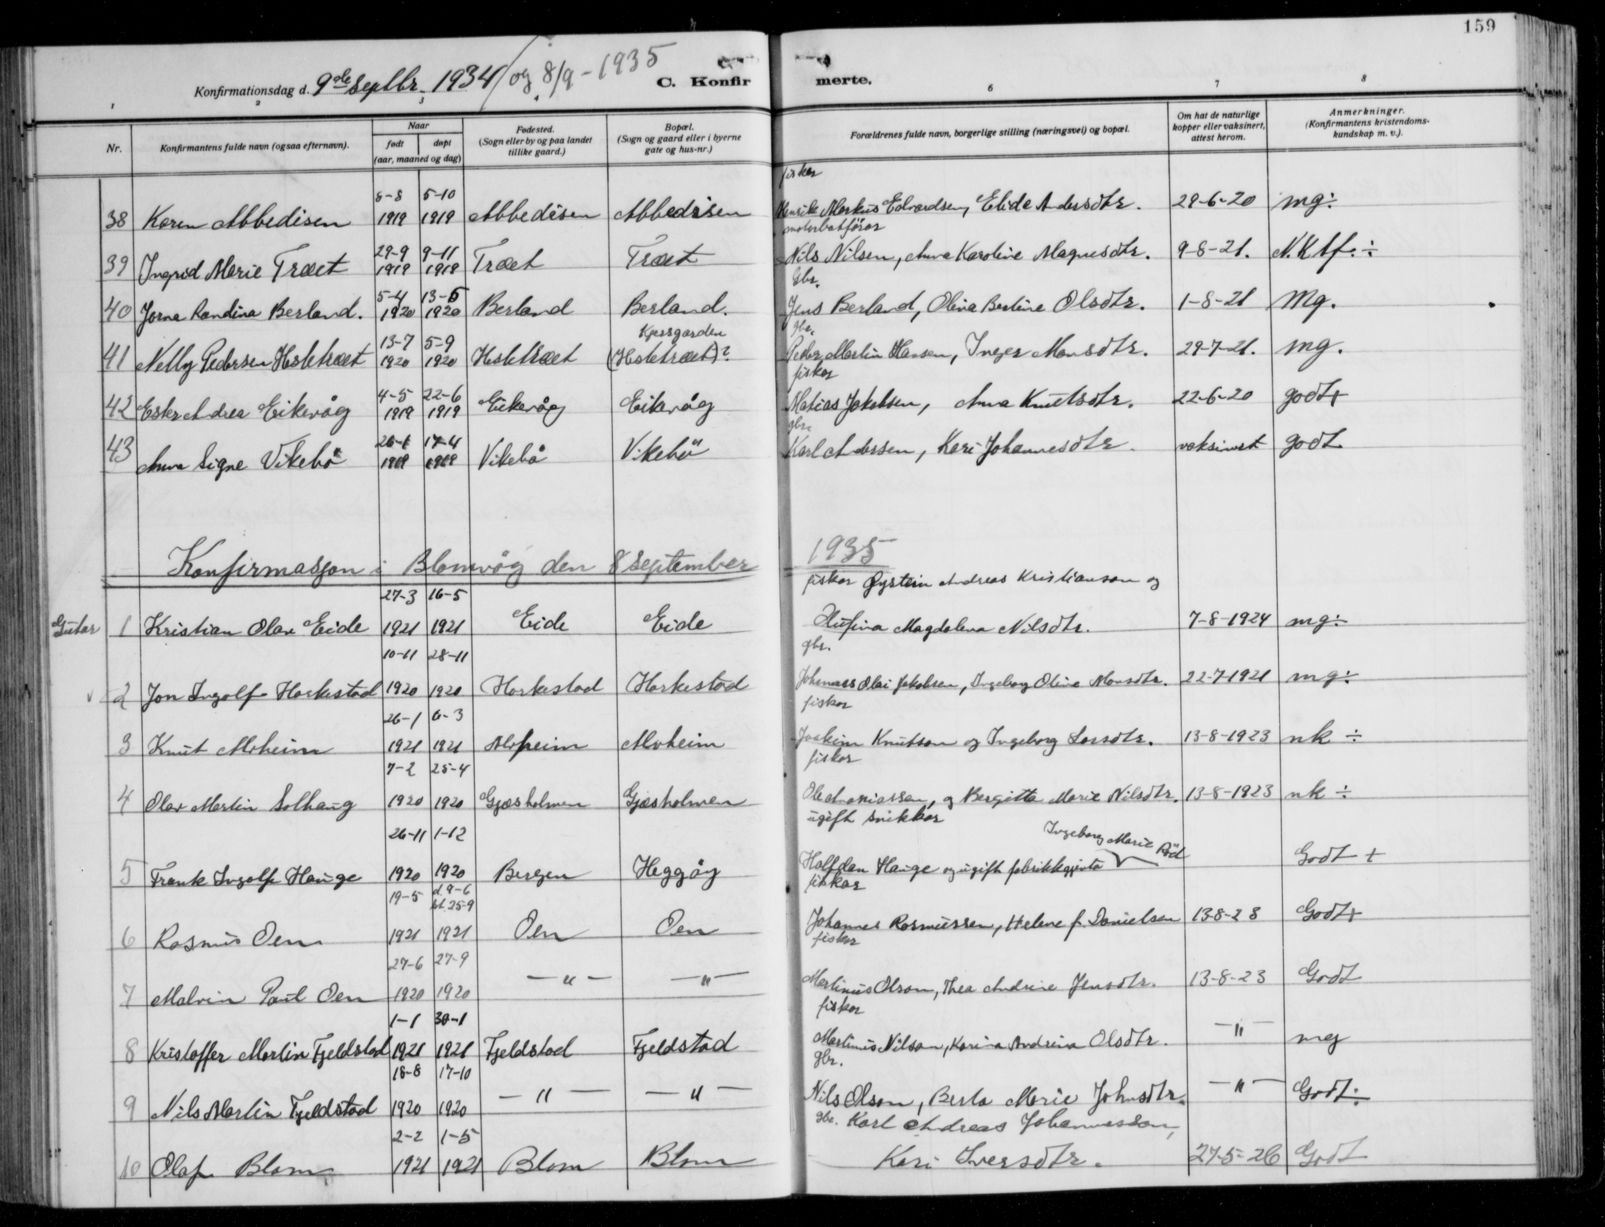 159
Konfirmationsdag d. 9de Septbr. 1934 / og 8/9 - 1935 C. Konfirmerte.
1 2 3 6 7 8
Nr. Konfirmantens fulde navn (ogsaa efternavn). Naar født døpt (aar, maaned og dag) Fødested. (Sogn eller by og paa landet tillike gaard.) Bopæl. (Sogn og gaard eller i byerne gate og hus-nr.) Forældrenes fulde navn, borgerlige stilling (næringsvei) og bopæl. Om hat de naturlige kopper eller vaksinert, attest herom. Anmerkninger. (Konfirmantens kristendomskundskap m. v.).
8-8 5-10 fisker
38 Karen Abbedisen 1919 1919 Abbedisen Abbedisen Henrik Markus Edvardsen, Elida Andersdtr. 29-6-20 mg ÷
29-9 9-11 motorbåtfører
39 Ingrid Marie Træet 1919 1919 Træet Træet Nils Nilsen, Anna Karoline Magnusdtr. 9-8-21. N.Ktf. ÷
5-4 13-5 Gbr.
40 Jorna Randina Berland. 1920 1920 Berland Berland. Jens Berland, Olina Bertine Olsdtr. 1-8-21 Mg.
13-7 5-9 Kjersgarden gbr.
41 Nelly Pedersen Histetræet 1920 1920 Histetræet (Histetræet)? Peder Martin Hansen, Inger Monsdtr. 29-7-21. mg.
4-5 22-6 fisker
42 Eskr Andrea Eikevåg 1919 1919 Eikevåg Eikevåg Matias Jakobsen, Anna Knutsdtr. 22-6-20 godt+
26-1 17-4 gbr.
43 Anna Signe Vikebø 1919 1919 Vikebø Vikebø Karl Andersen, Kari Johannesdtr. vaksinert godt
Konfirmasjon i Blomvåg den 8 September 1935
27-3 16-5 fisker Øystein Andreas Kristianson og
Gutar 1 Kristian Olav Eide 1921 1921 Eide Eide Olufina Magdalena Nilsdtr. 7-8-1924 mg ÷
10-11 28-11 gbr.
2 Jon Ingolf Horkestad 1920 1920 Horkestad Horkestad Johannes Olai Jakobsen, Ingeborg Oline Monsdtr. 22-7-1921 mg ÷
26-1 6-3 fiskar
3 Knut Moheim 1921 1921 Moheim Moheim Joakim Knutson og Ingeborg Larsdtr. 13-8-1923 nk ÷
7-2 25-4 fiskar
4 Olav Martin Solhaug 1920 1920 Gjøsholmen Gjøsholmen Ole Ananiassen, og Bergitta Marie Nilsdtr. 13-8-1923 nk ÷
26-11 1-12 ugift snikkar Ingeborg Marie Rød
5 Frank Ingolf Hauge 1920 1920 Bergen Heggøy Halfdan Hauge og ugift fabrikkgjenta Godt +
19-5 d. 9-6 st. 25-9 fiskar
6 Rasmus Oen 1921 1921 Oen Oen Johannes Rasmussen, Helene f. Danielsen 13-8-23 Godt+
27-6 27-9 fiskar
7 Malvin Paul Oen 1920 1920 — " — — " — Martinus Olson, Thea Andrine Jensdtr. 13-8-23 Godt
1-1 30-1 fiskar
8 Kristoffer Martin Fjeldstad 1921 1921 Fjeldstad Fjeldstad Martinus Nilson, Karina Andrina Olsdtr. — " — mg
18-8 17-10 gbr.
9 Nils Martin Fjeldstad 1920 1920 — " — — " — Nils Olson, Berta Marie Johnsdtr. — " — Godt ÷
2-2 1-5 gbr. Karl Andreas Johannesson,
10 Olaf Blom 1921 1921 Blom Blom Kari Iversdtr. 27-5-26 Godt